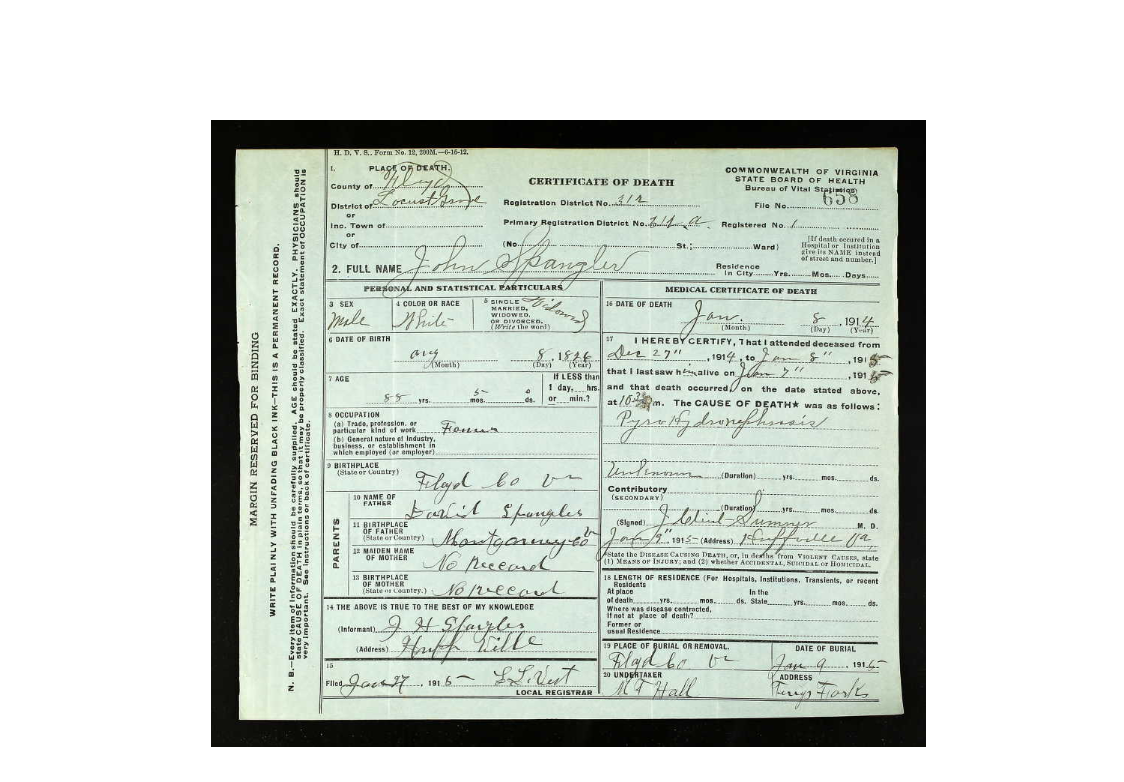 H. D. V. S.. Form No. 12, 200M.—6-16-12.
1. PLACE OF DEATH.
County of Floyd
District of Locust Grove
or
Inc. Town of
or
City of
CERTIFICATE OF DEATH
Registration District No. 312
Primary Registration District No. 212 a
(No. St.; Ward)
COMMONWEALTH OF VIRGINIA
STATE BOARD OF HEALTH
Bureau of Vital Statistics
658
File No.
Registered No. 1
[If death occured in a
Hospital or Institution
give its NAME instead
of street and number.]
2. FULL NAME John Spangler
Residence
in City Yrs. Mos. Days
PERSONAL AND STATISTICAL PARTICULARS
3 SEX
Male
4 COLOR OR RACE
White
5 SINGLE
MARRIED,
WIDOWED,
OR DIVORCED.
(Write the word)
Widowed
6 DATE OF BIRTH
Aug 8, 1826
(Month) (Day) (Year)
7 AGE
88 yrs. 5 mos. 0 ds.
If LESS than
1 day, hrs.
or min.?
8 OCCUPATION
(a) Trade, profession, or
particular kind of work Farmer
(b) General nature of Industry,
business, or establishment in
which employed (or employer)
9 BIRTHPLACE
(State or Country)
Floyd Co Va
PARENTS
10 NAME OF
FATHER
David Spangler
11 BIRTHPLACE
OF FATHER
(State or Country)
Montgomery Co Va
12 MAIDEN NAME
OF MOTHER
No Reccord
13 BIRTHPLACE
OF MOTHER
(State or Country.)
No reccord
14 THE ABOVE IS TRUE TO THE BEST OF MY KNOWLEDGE
(Informant) J H Spangler
(Address) Huffville
15
Filed Jan 27, 1915 S.L. Vest
LOCAL REGISTRAR
MEDICAL CERTIFICATE OF DEATH
16 DATE OF DEATH
Jan. 8, 1914
(Month) (Day) (Year)
17 I HEREBY CERTIFY, That I attended deceased from
Dec 27", 1914, to Jan 8", 1915
that I last saw him alive on Jan 7", 1915
and that death occurred, on the date stated above,
at m. The CAUSE OF DEATH* was as follows:
Pyro Hydronephrosis
Unknown (Duration) yrs. mos. ds.
Contributory
(SECONDARY)
(Duration) yrs. mos. ds.
(Signed) J Clint Summer M. D.
Jan 9", 1915 (Address) Huffville Va,
*State the DISEASE CAUSING DEATH, or, in deaths from VIOLENT CAUSES, state
(1) MEANS OF INJURY; and (2) whether ACCIDENTAL, SUICIDAL OR HOMICIDAL.
18 LENGTH OF RESIDENCE (For Hospitals, Institutions, Transients, or recent
Residents
At place In the
of death yrs. mos. ds. State yrs. mos. ds.
Where was disease contracted,
if not at place of death?
Former or
usual Residence
19 PLACE OF BURIAL OR REMOVAL.
Floyd Co Va
DATE OF BURIAL
Jan 9, 1915
20 UNDERTAKER
M T Hall
ADDRESS
Forks
MARGIN RESERVED FOR BINDING
WRITE PLAINLY WITH UNFADING BLACK INK—THIS IS A PERMANENT RECORD.
N. B.—Every item of information should be carefully supplied. AGE should be stated EXACTLY. PHYSICIANS should
state CAUSE OF DEATH in plain terms, so that it may be properly classified. Exact statement of OCCUPATION is
very important. See instructions on back of certificate.